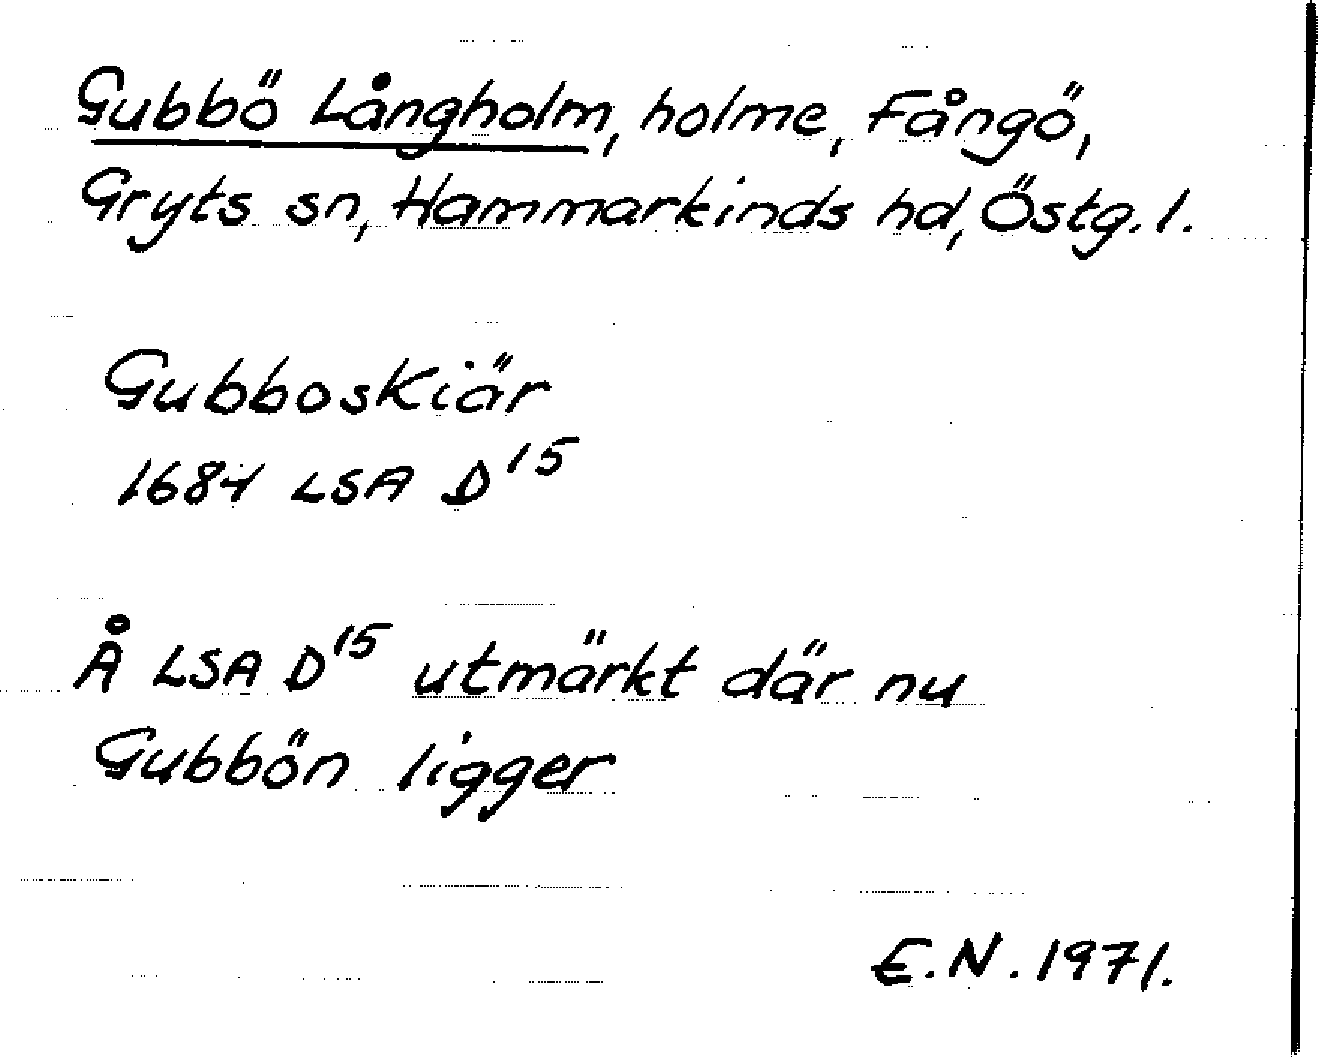 Gubbö Långholm, holme, Fångö,
Gryts sn, Hammarkinds hd, Östg. l.
Gubboskiär
1684 LSA D¹⁵
Å LSA D¹⁵ utmärkt där nu
Gubbön ligger
E.N. 1971.